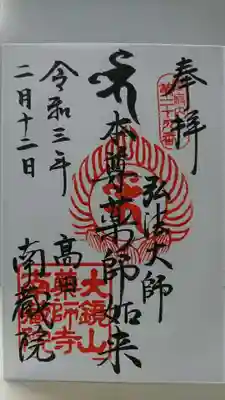 奉拝
弘法大師
本尊薬師如来
高興
大鏡山
薬師寺
南蔵院
令和三年
二月十二日